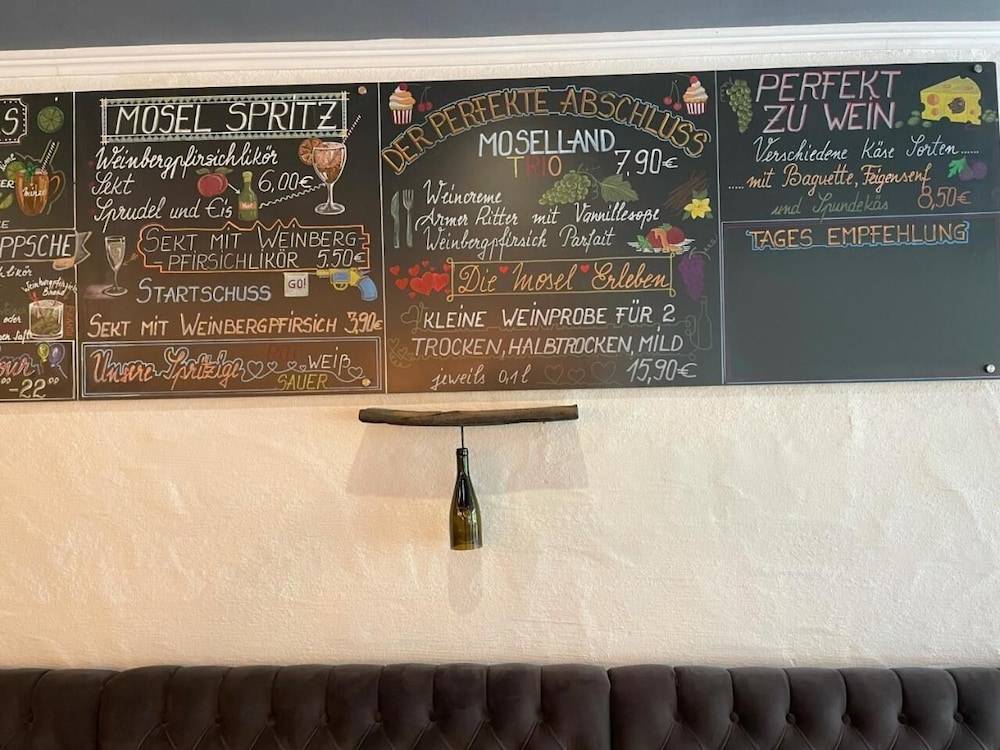 MOSEL SPRITZ
Weinbergpfirsichlikör
Sekt
6,00€
Sprudel und Eis
SEKT MIT WEINBERG-
-PFIRSICHLIKÖR 5,50€
STARTSCHUSS GO!
SEKT MIT WEINBERGPFIRSICH 3,90€
Unsere Spritzige ROT WEIß
SAUER
PPSCHE
-22⁰⁰
DER PERFEKTE ABSCHLUSS
MOSELLAND
TRIO 7,90€
Weincreme
Armer Ritter mit Vannillesoße
Weinbergpfirsich Parfait
Die Mosel Erleben
KLEINE WEINPROBE FÜR 2
TROCKEN, HALBTROCKEN, MILD
jeweils 0,1 l 15,90€
PERFEKT
ZU WEIN
Verschiedene Käse Sorten......
.... mit Baguette, Feigensenf
und Spundekäs 8,50€
TAGES EMPFEHLUNG